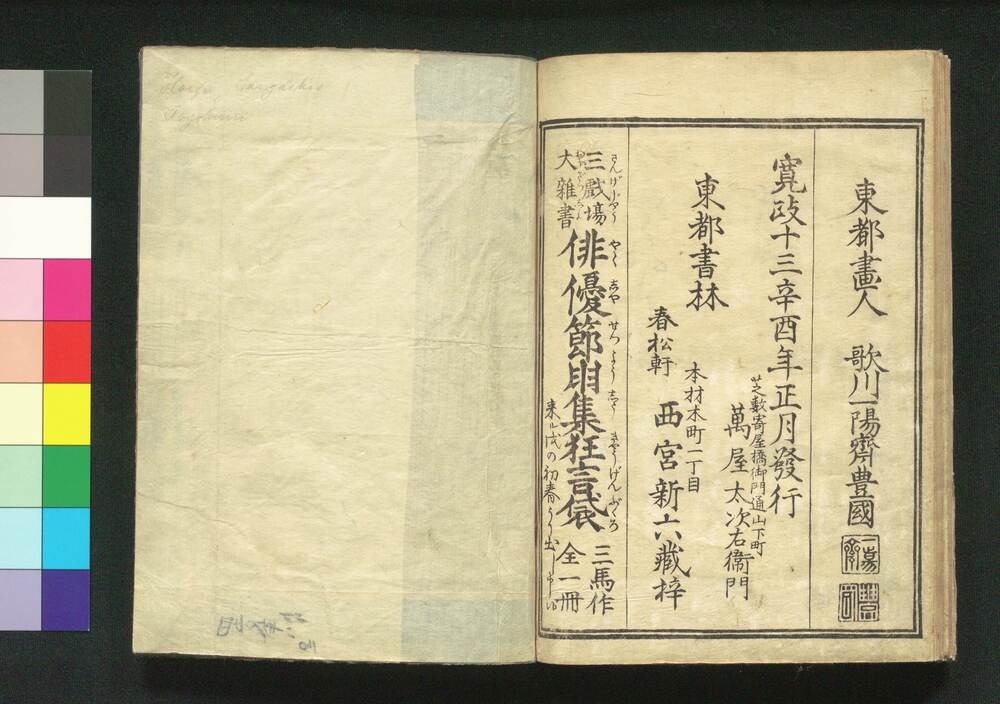 東都畫人　歌川一陽齋豊國
一陽齋
豊國
寛政十三辛酉年正月發行
東都書林
芝數寄屋橋御門通山下町
萬屋太次右衞門
本材木町一丁目
春松軒　西宮新六藏梓
三戲場
さんげじやう
大雜書
俳優節用集狂言袋
やくしやせつようしうきやうげんぶくろ
三馬作
全一冊
来ル戌の初春より出し
Toyokuni